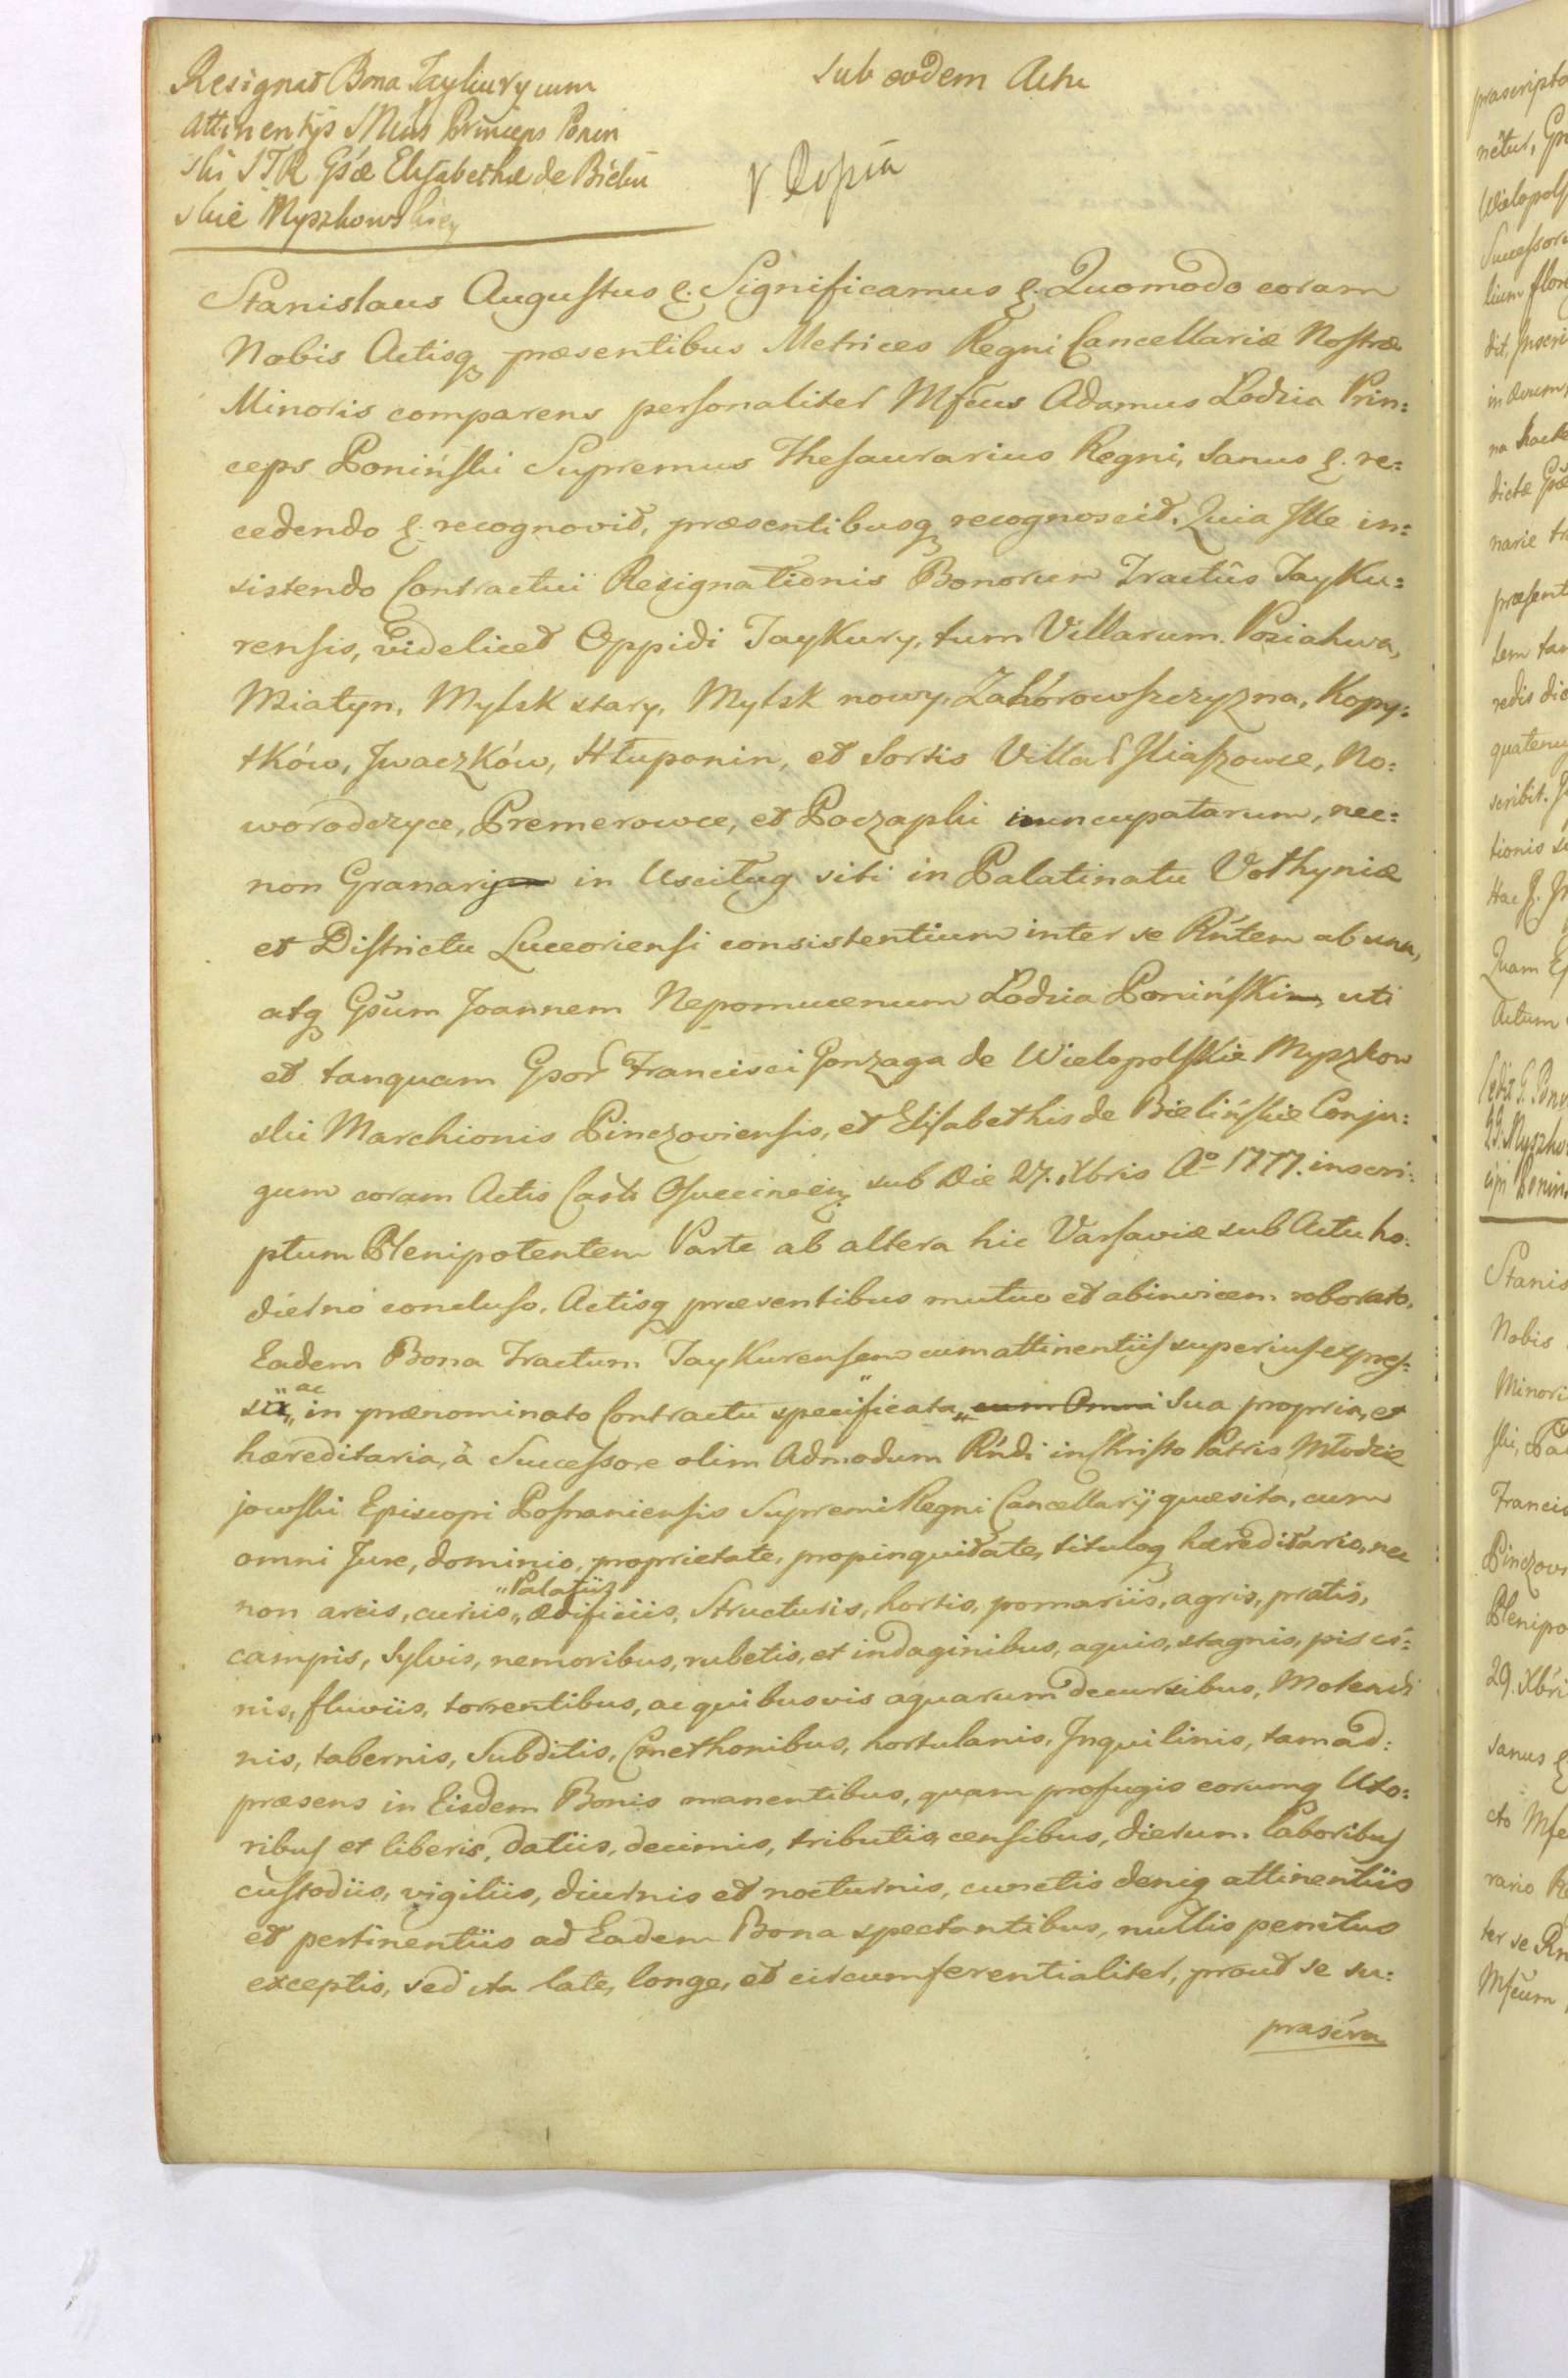 Resignat Bona Taykury cum
Attinentijs Mfcus Princeps Ponin
ski STR Gsæ Elisabethæ de Bielin
skie Myszkowskiey
sub eodem Actu
V Copia
Stanislaus Augustus &. Significamus &. Quomodo coram
Nobis Actisq præsentibus Metrices Regni Cancellariæ Nostræ
Minoris comparens personaliter Mfcus Adamus Lodzia Prin:
ceps Poniński Supremus Thesaurarius Regni, sanus &. re:
cedendo &. recognovit, præsentibusq recognoscit. Quia Ille in:
sistendo Contractui Resignationis Bonorum Tractûs Tayku:
rensis, videlicet Oppidi Taykury, tum Villarum Poziahwa,
Miatyn, Mylsk stary, Mylsk nowy, Zahorowszczyzna, Kopy:
tków, Iwaczków, Hłuponin, et Sortis Villar Iliaszowce, No:
worodczyce, Premerowce, et Poczapki nuncupatarum, nec:
non Granarij in Usciług siti in Palatinatu Volhyniæ
et Districtu Luceoriensi consistentium inter se Rńtem ab una,
atq Gsum Joannem Nepomucenum Lodzia Poniński, uti
et tanquam Gsor Francisci Gonzaga de Wielopolskie Myszkow
ski Marchionis Pinczoviensis, et Elisabethis de Bielińskie Conju:
gum coram Actis Castr Osviecimen; sub Die 27. Xbris Aº 1777. inscri:
ptum Plenipotentem Parte ab altera hic Varsaviæ sub Actu ho:
dierno concluso, Actisq præsentibus mutuo et abinvicem roborato,
Eadem Bona Tractum Taykurensem cum attinentiis superius expres:
ac
sis, in prænominato Contractu specificata, cum Omni sua propria, et
hæreditaria, à Successore olim Admodum Rńdi in Christo Patris Młodzie
jowski Episcopi Posnaniensis Supremi Regni Cancellarij quæsita, cum
omni Jure, dominio, proprietate, propinquitate, tituloq hæreditario, nec
Palatiis
non areis, curiis, ædificiis, Structuris, hortis, pomariis, agris, pratis,
campis, Sylvis, nemoribus, rubetis, et indaginibus, aquis, stagnis, pisci:
nis, fluviis, torrentibus, ac quibusvis aquarum decursibus, Molendi
nis, tabernis, Subditis, Cmethonibus, hortulanis, Inquilinis, tam ad:
præsens in Eisdem Bonis manentibus, quam profugis eorumq Uxo:
ribus et liberis, datiis, decimis, tributis, censibus, dierum. Laboribus
custodiis, vigiliis, diurnis et nocturnis, cunctis deniq attinentiis
et pertinentiis ad Eadem Bona spectantibus, nullis penitus
exceptis, sed ita late, longe, et circumferentialiter, prout se su:
præscra
præscripto
netur,
Wielopols
Successor
lium
dit,
in
dictæ
narie
præsent
tem tan
redis
quatenu
scribit.
tionis
Hac
Quam
Actum
Stanis
Nobis
Minori
ski,
Francis
Pinczov
Plenipo
29. Xbri
sanus &
cto Mfc
rario Re
ter se Rn
Mfcum